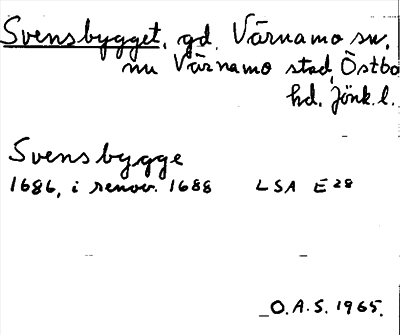 Svensbygget, gd. Värnamo sn,
nu Värnamo stad, Östbo
hd, Jönk. l.
Svensbygge
1686, i renov. 1688 LSA E28
O.A.S. 1965.